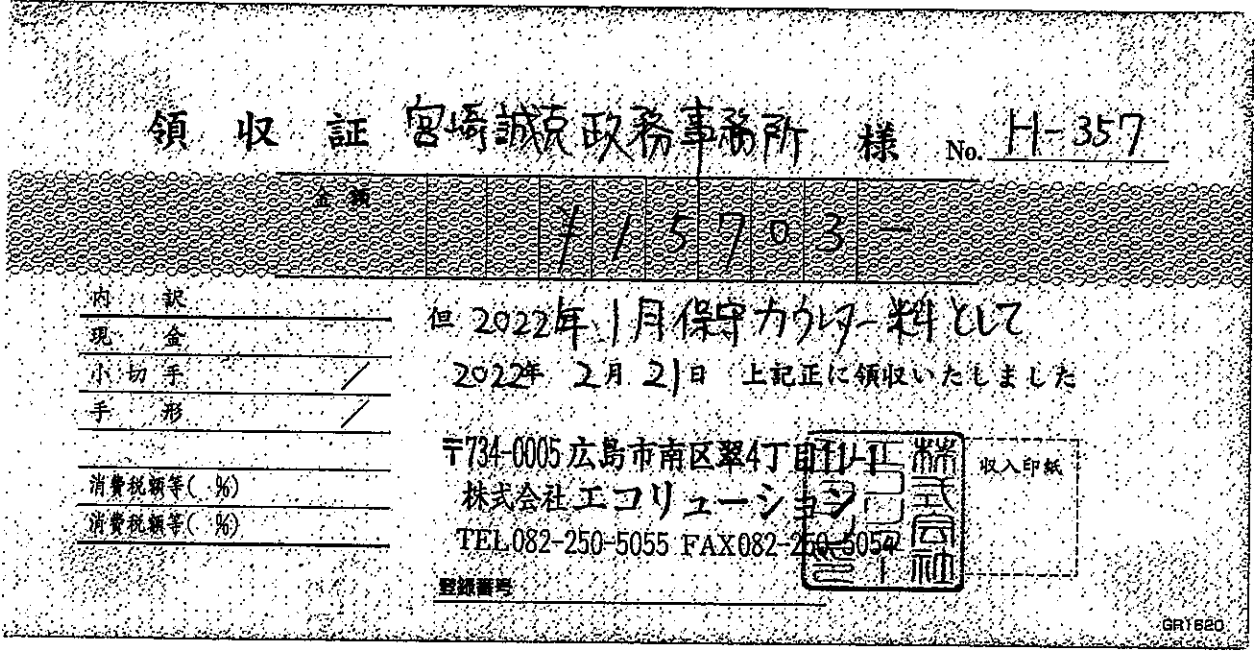 領収証 宮崎誠克政務事務所 様 No. H-357
金額 ¥15703-
内訳
現金
小切手 /
手形 /
消費税額等( %)
消費税額等( %)
但 2022年1月保守カウンター料として
2022年 2月 21日 上記正に領収いたしました
〒734-0005 広島市南区翠4丁目11-1
株式会社エコリューション
TEL082-250-5055 FAX082-250-5054
登録番号
収入印紙
株式会社
GR1620